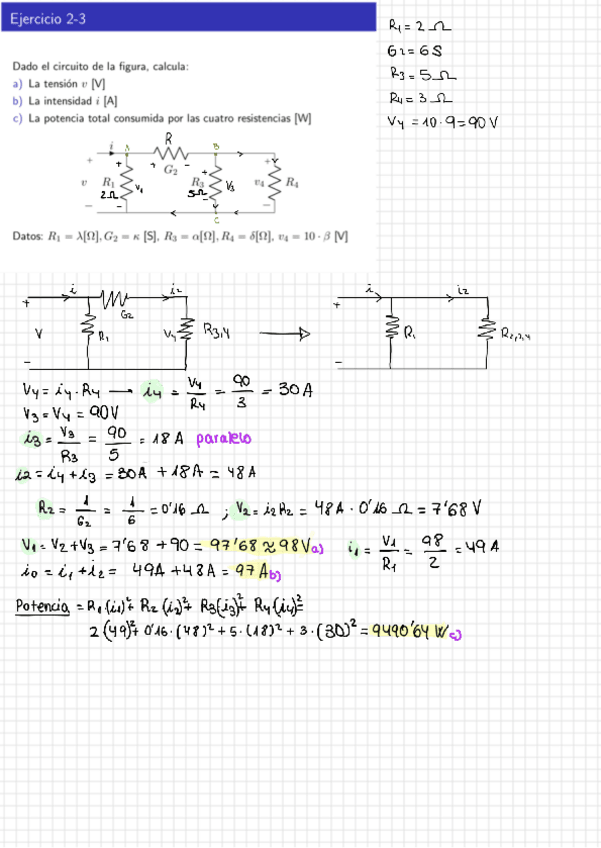 Ejercicio 2-3
Dado el circuito de la figura, calcula:
a) La tensión v [V]
b) La intensidad i [A]
c) La potencia total consumida por las cuatro resistencias [W]
R1 = 2 Ω
G2 = 6 S
R3 = 5 Ω
R4 = 3 Ω
V4 = 10 · 9 = 90 V
i A R B
+ + - + +
G2
v R1 V1 R3 V3 v4 R4
2Ω 5Ω
- - - -
C
Datos: R1 = λ[Ω], G2 = κ [S], R3 = α[Ω], R4 = δ[Ω], v4 = 10 · β [V]
i i2 i i2
+ G2 +
V R1 V4 R3,4 R1 R2,3,4
- -
V4 = i4 · R4 → i4 = V4/R4 = 90/3 = 30 A
V3 = V4 = 90V
i3 = V3/R3 = 90/5 = 18 A paralelo
i2 = i4 + i3 = 30A + 18A = 48A
R2 = 1/G2 = 1/6 = 0'16 Ω ; V2 = i2 R2 = 48A · 0'16 Ω = 7'68 V
V1 = V2 + V3 = 7'68 + 90 = 97'68 ≈ 98V a) i1 = V1/R1 = 98/2 = 49 A
i0 = i1 + i2 = 49A + 48A = 97 A b)
Potencia = R1(i1)² + R2(i2)² + R3(i3)² + R4(i4)² =
2(49)² + 0'16 · (48)² + 5 · (18)² + 3 · (30)² = 9490'64 W c)